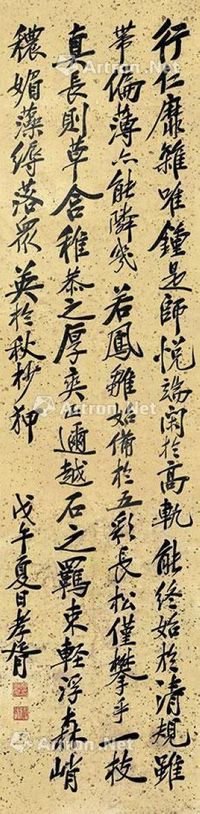 行仁靡雜唯鍾是師悅端閑於高軌能終始於清規雖
帶偏薄亦能隣幾若鳳雛始備於五彩長松僅攀乎一枝
真長則草含稚恭之厚爽正邇越石之羈束輕浮森峭
穠媚藻縟落衆英於秋杪狎
戊午夏日孝胥
Artron.Net
Artron.Net
Artron.Net
Artron.Net